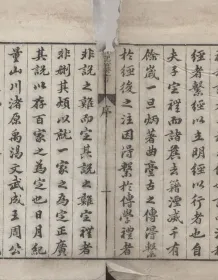 經者繫經以立明經以行者也自
夫子定禮而諸侯去籍湮滅千有
餘歲一旦炳著曲臺古之傳得繫
於經後之注因得繫於傳學禮者
序
非說之難而定其說之難定禮者
非刪其煩以就一家之為定正廣
其說以存百家之為定也日月紀
量山川渚原禹湯文武成王周公